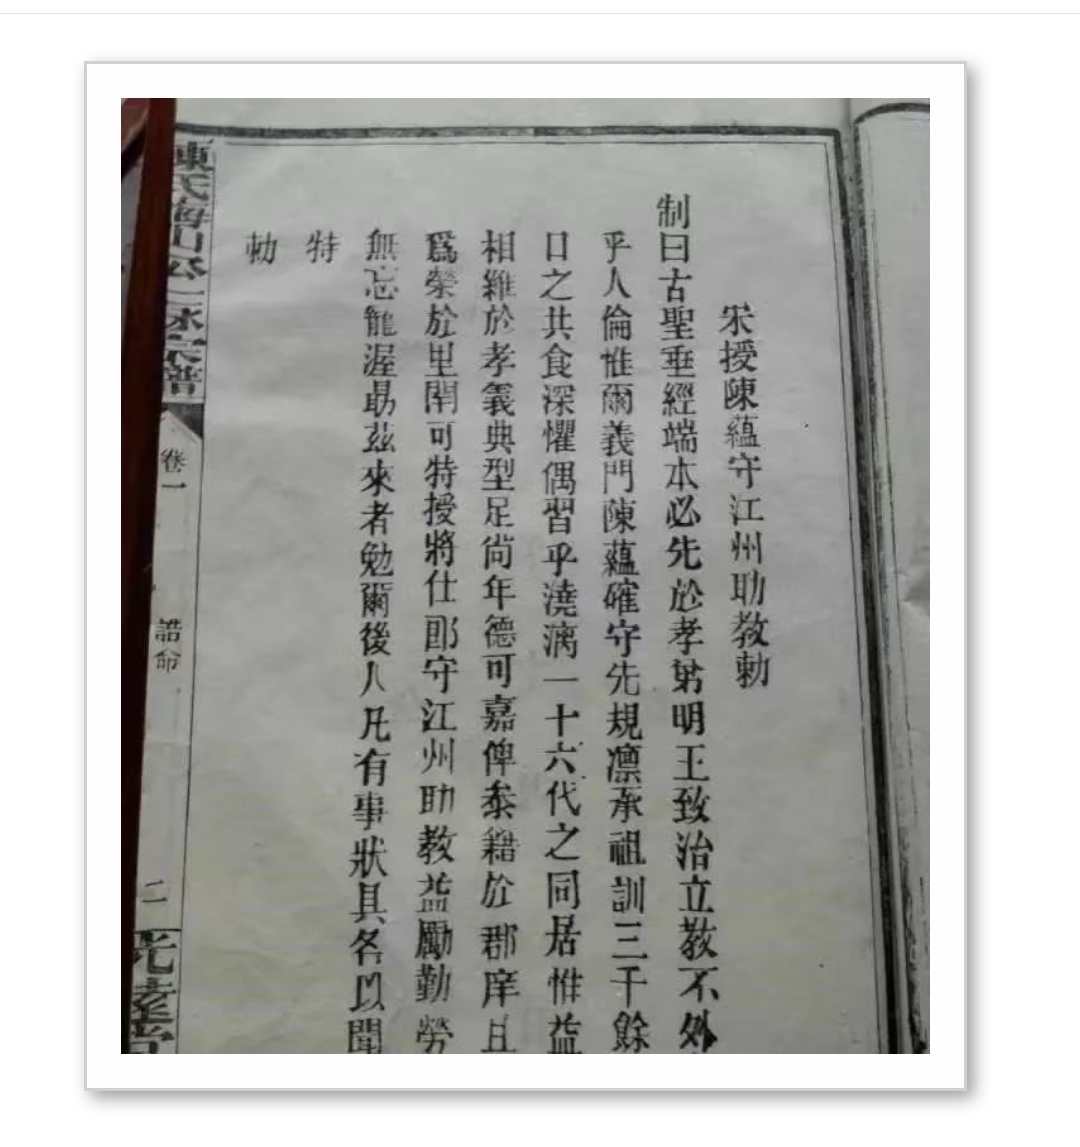 宋授陳蘊守江州助教勅
制曰古聖垂經端本必先於孝弟明王致治立教不外
乎人倫惟爾義門陳蘊確守先規凛承祖訓三千餘
口之共食深懼偶習乎澆漓一十六代之同居惟益
相維於孝義典型足尚年德可嘉俾叅籍於郡庠且
爲榮於里閈可特授將仕郎守江州助教益勵勤勞
無忘寵渥勗茲來者勉爾後人凡有事狀具名以聞
特
勅
陳氏海山公一脉宗譜
卷一
誥命
二
光遠堂